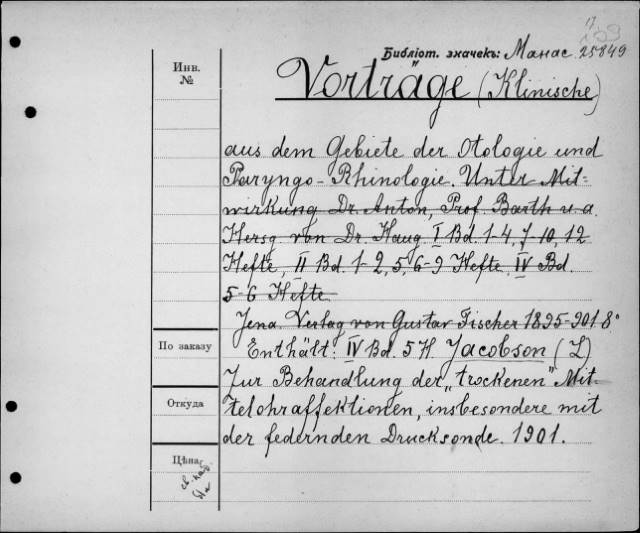 17
Библіот. значекъ: Манас. 25849
Инв.
№
Vorträge (Klinische)
aus dem Gebiete der Otologie und
Pharyngo-Rhinologie. Unter Mit-
wirkung Dr. Anton, Prof. Barth u. a.
Hersg von Dr. Haug. I Bd. 1-4, 7-10, 12
Hefte, II Bd. 1-2, 5, 6-9 Hefte. IV Bd.
5-6 Hefte
Jena. Verlag von Gustav Fischer 1895-901 8°
По заказу
Enthält: IV Bd. 5 H. Jacobson (L)
Zur Behandlung der „trockenen" Mit-
Откуда
telohraffektionen, insbesondere mit
der federnden Drucksonde. 1901.
Цѣна